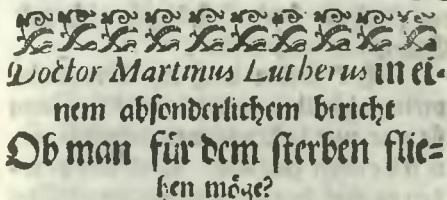 Doctor Martinus Lutherus in ei-
nem absonderlichem bericht
Ob man für dem sterben flie-
hen möge?